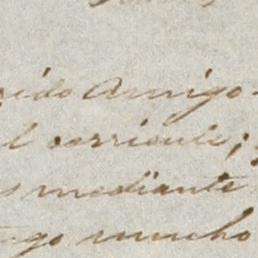 rido Amigo
l corriente;
s mediante
go mucho